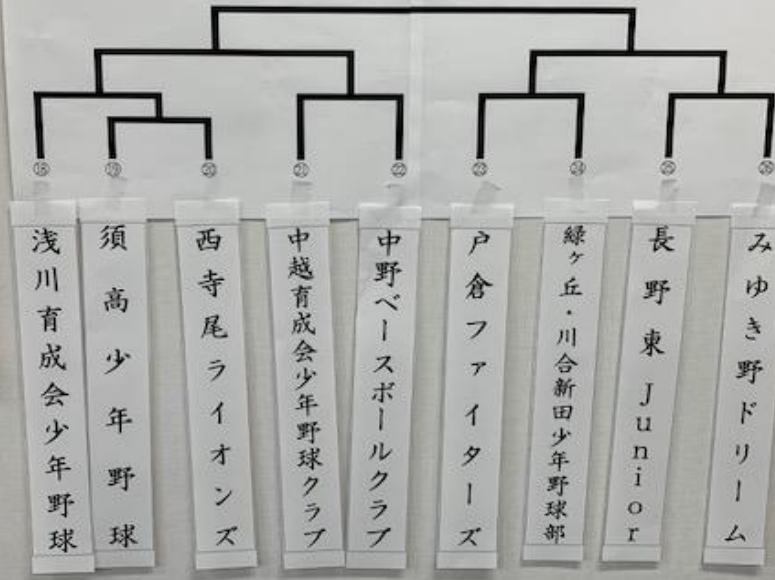 ⑱ ⑲ ⑳ ㉑ ㉒ ㉓ ㉔ ㉕ ㉖
浅川育成会少年野球
須高少年野球
西寺尾ライオンズ
中越育成会少年野球クラブ
中野ベースボールクラブ
戸倉ファイターズ
緑ヶ丘・川合新田少年野球部
長野東Junior
みゆき野ドリーム